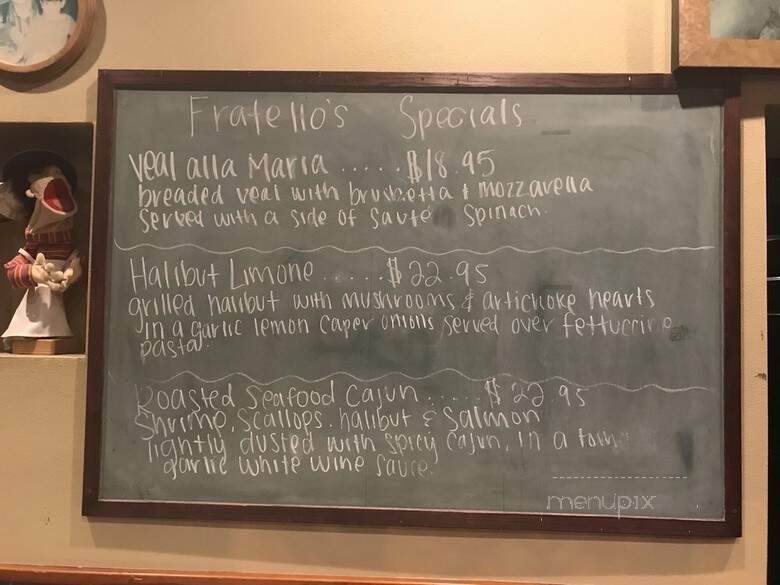 Fratello's Specials
Veal alla Maria ..... $18.95
breaded veal with brushetta & mozzarella
Served with a side of Saute Spinach.
Halibut Limone ..... $22.95
grilled halibut with mushrooms & artichoke hearts
in a garlic lemon caper onions served over fettuccine
pasta.
Roasted Seafood Cajun ..... $22.95
Shrimp, Scallops, halibut & Salmon
lightly dusted with spicy cajun, in a
garlic white wine sauce.
menupix